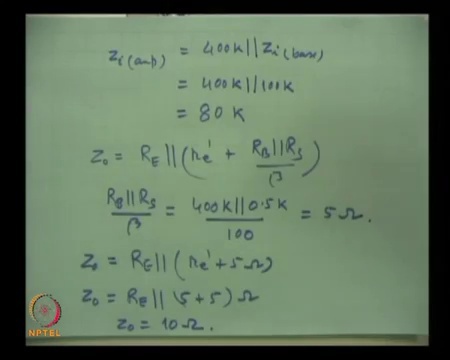 Zi(amp) = 400K||Zi(base)
= 400K||100K
= 80 K
Zo = RE||(re' + RB||RS/β)
RB||RS/β = 400K||0.5K/100 = 5Ω.
Zo = RE||(re' + 5Ω)
Zo = RE||(5+5)Ω
Zo = 10Ω.
NPTEL